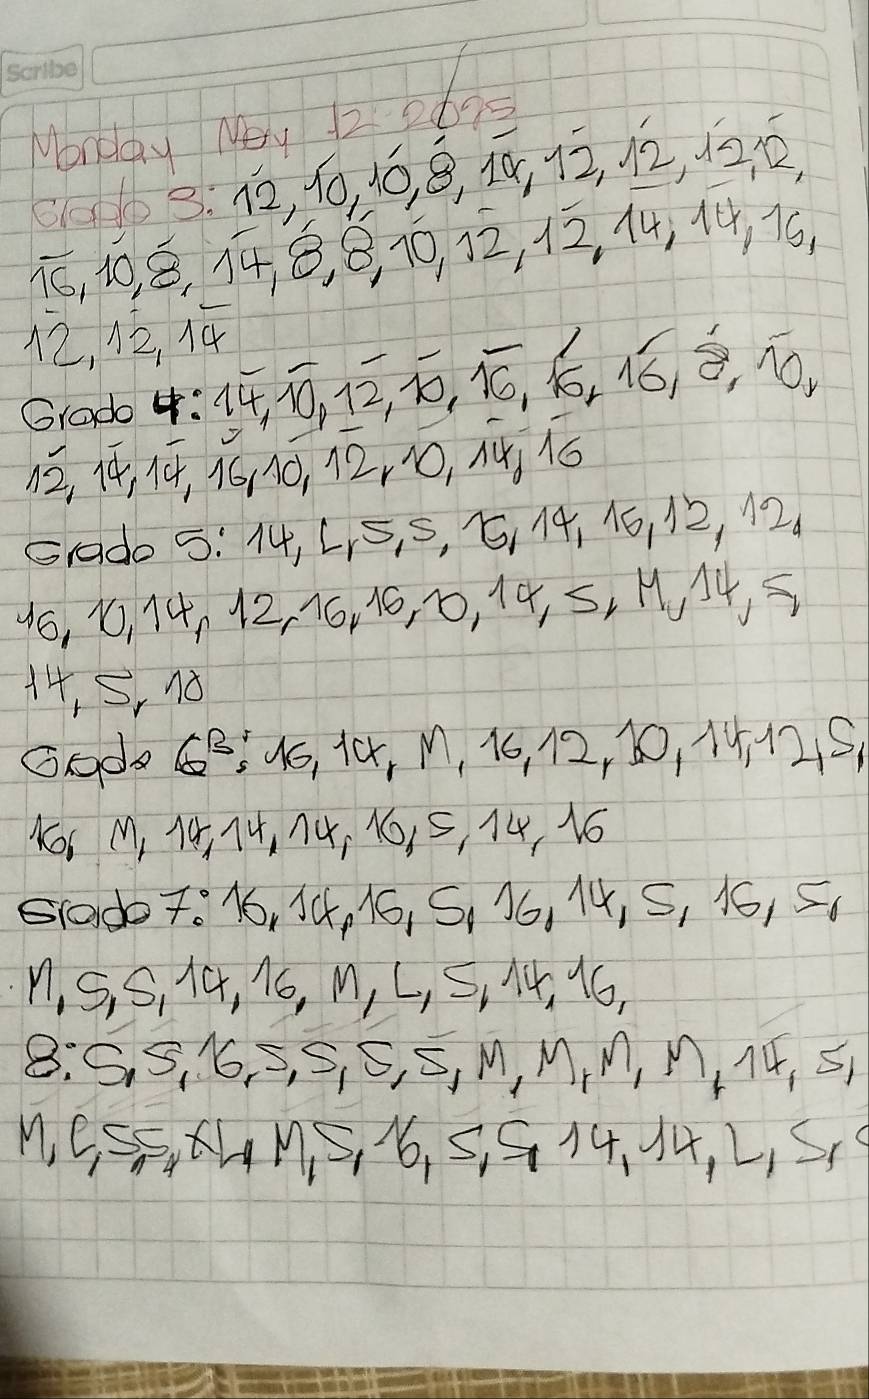 Scribe
Monday May 12 2025
Grado 3: 12, 10, 10, 8, 14, 12, 12, 12, 12,
16, 10, 8, 14, 8, 8, 10, 12, 12, 14, 14, 16,
12, 12, 14
Grado 4: 14, 10, 12, 10, 16, 16, 16, 8, 10,
12, 14, 14, 16, 10, 12, 10, 14, 16
Grado 5: 14, L, S, S, 16, 14, 16, 12, 12,
16, 10, 14, 12, 16, 16, 10, 14, S, M, 14, S,
14, S, 10
Grado 6B: 16, 14, M, 16, 12, 10, 14, 12, S,
16, M, 14, 14, 14, 16, S, 14, 16
Grado 7: 16, 14, 16, S, 16, 14, S, 16, S,
M, S, S, 14, 16, M, L, S, 14, 16,
8: S, S, 16, S, S, S, S, M, M, M, M, 14, S,
M, S, S, M, S, 16, S, S, 14, 14, L, S,